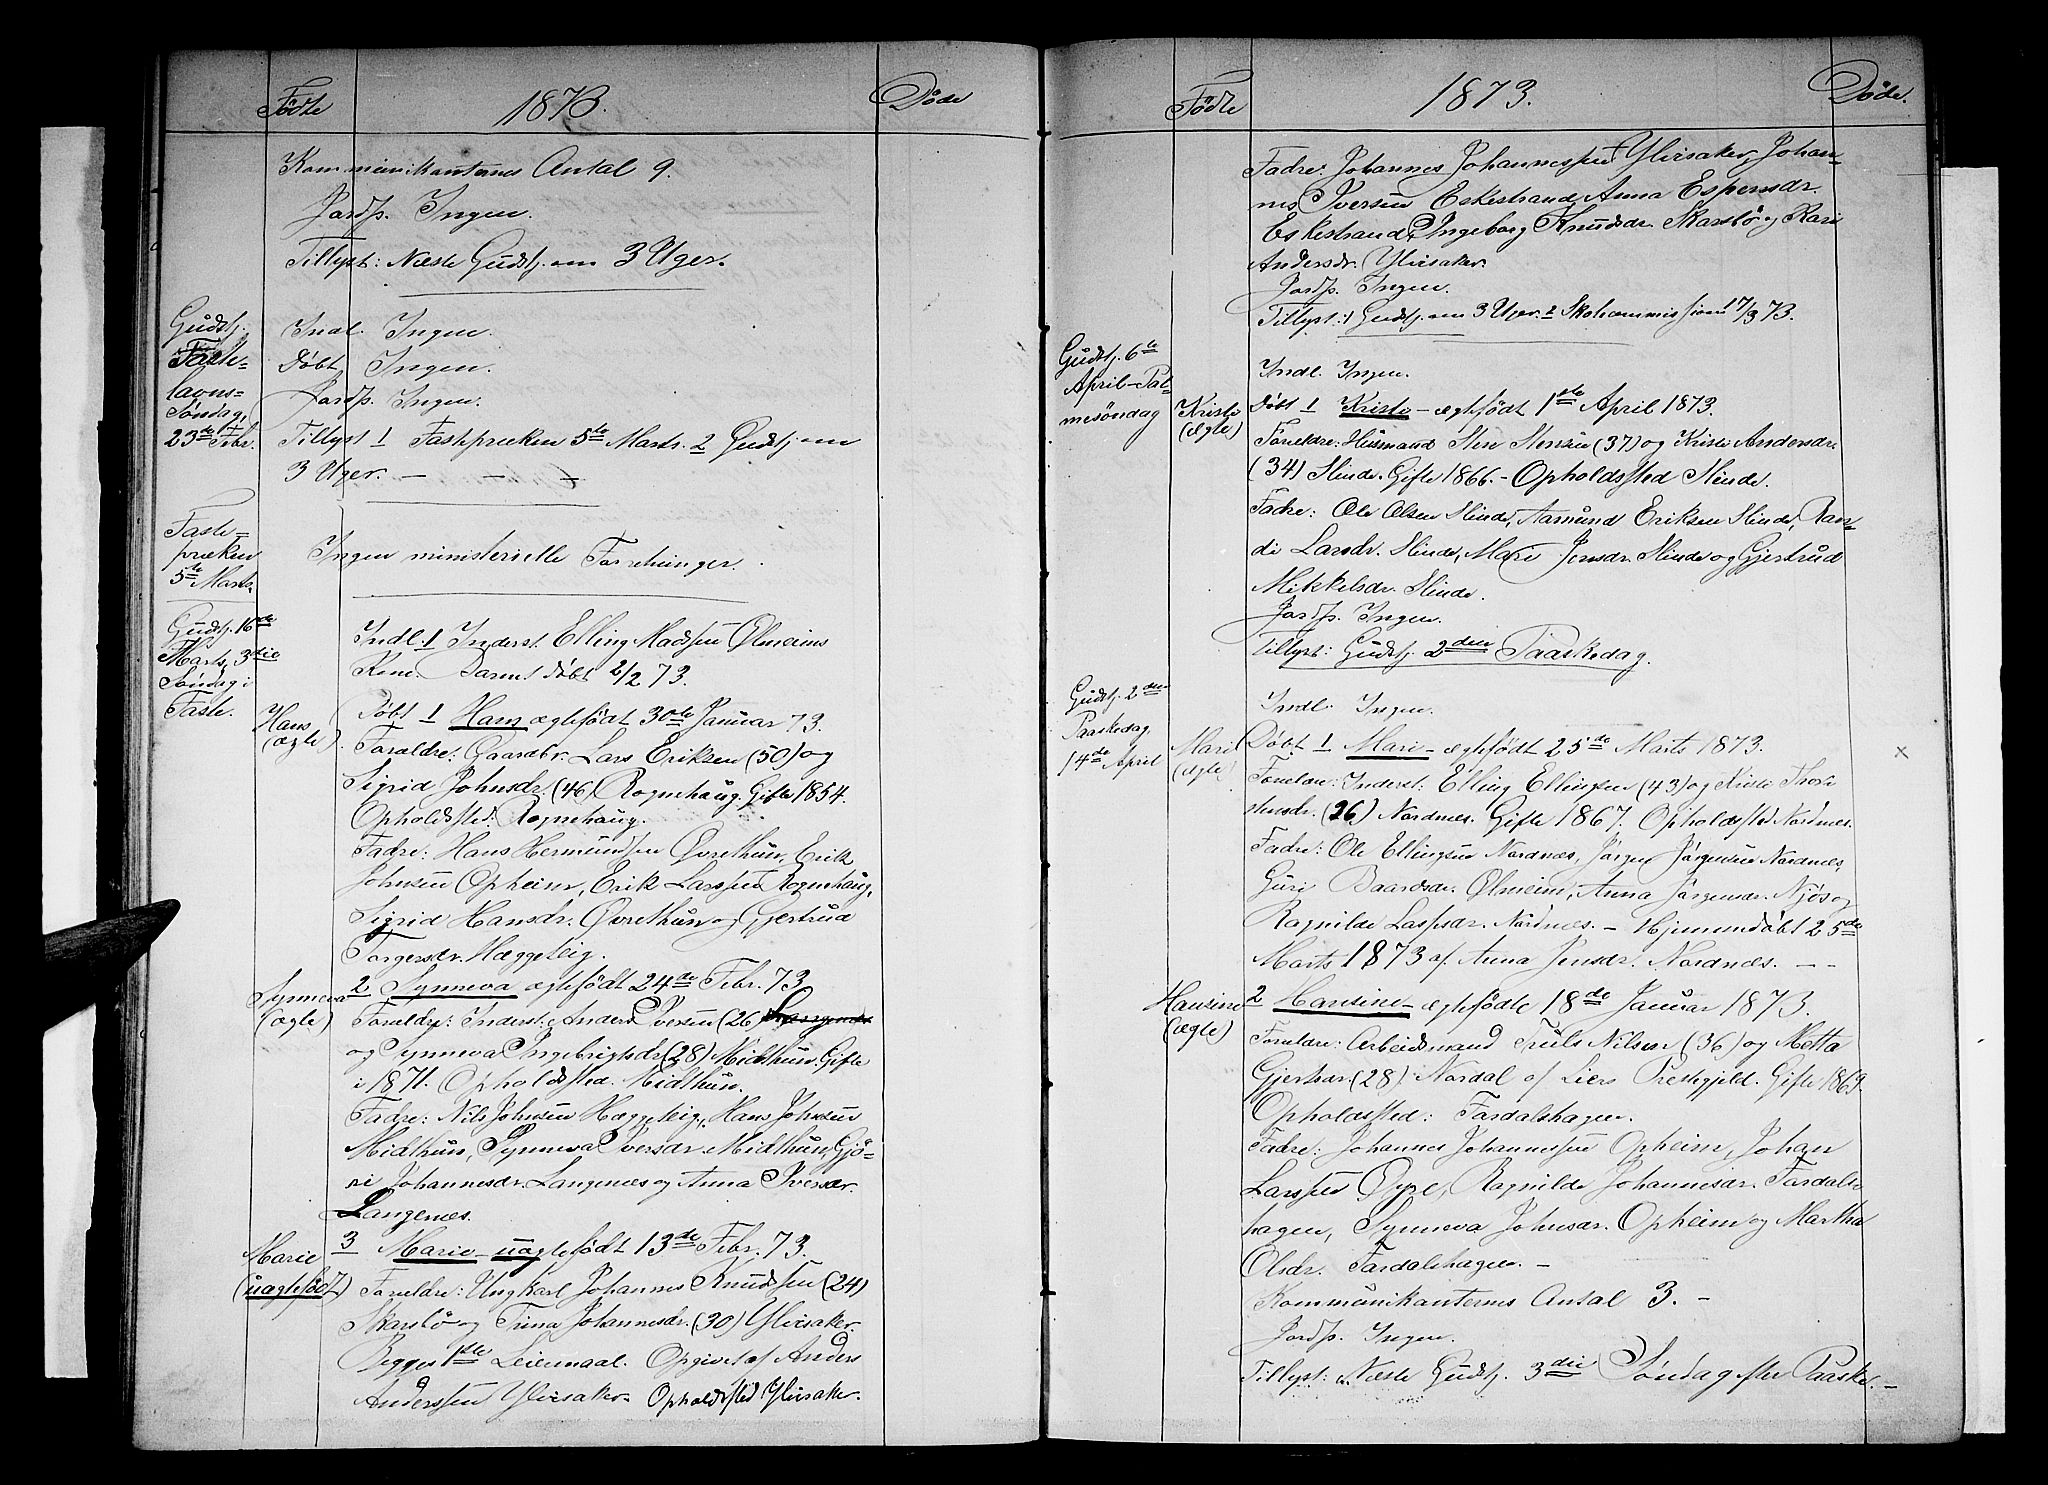 Fødte
1873.
Døde
Kommunikanternes Antal 9.
Jordp. Ingen.
Tillyst: Næste Gudstj. om 3 Uger.
Gudstj.
Faste-
lavns-
Søndag,
23de Febr.
Indl. Ingen.
Døbt Ingen.
Jordp. Ingen.
Tillyst 1 Fastepræken 5te Marts. 2 Gudstj. om
3 Uger. — — —
Faste-
præken
5te Marts.
Ingen ministerielle Forretninger.
Gudstj. 16de
Marts, 3die
Søndag i
Faste.
Indl. 1 Inderst. Elling Madsen Ølmeims
Kone. Barnet døbt 2/2 73.
Hans
(ægte)
Døbt 1 Hans ægtefødt 30te Januar 73.
Forældre: Gaardbr. Lars Eriksen (50) og
Sigrid Johnsdr. (46) Rognehaug. Gifte 1854.
Opholdssted: Rognehaug.
Fadre: Hans Hermundsen Øvrethun, Erik
Johnsen Opheim, Erik Larssen Rognehaug,
Sigrid Hansdr. Øvrethun og Gjertrud
Torgersdr. Hæggeteig.
Synneva
(ægte)
2 Synneva ægtefødt 24de Febr. 73
Forældre: Inderst. Anders Iversen (26)
og Synneva Ingebrigtsdr. (28) Midthun. Gifte
i 1871. Opholdssted. Midthun.
Fadre: Nils Johnsen Hæggeteig, Hans Johnsen
Midthun, Synneva Iversdr. Midthun, Gjø-
ri Johannesdr. Langenæs og Anna Iversdr.
Langenæs.
Marie
(uægtefødt)
3 Marie – uægtefødt 13de Febr. 73.
Forældre: Ungkarl Johannes Knudssen (24)
Skarsbø og Trina Johannesdr. (30) Ylvisaker.
Begges 1ste Leiermaal. Opgivet af Anders
Anderssen Ylvisaker. Opholdssted Ylvisaker.
Fødte
1873.
Døde.
Fadre: Johannes Johannessen Ylvisaker, Johan-
nes Iversen Eskestrand, Anna Espensdr.
Eskestrand, Ingeborg Knudsdr. Skarsbø og Kari
Andersdr. Ylvisaker.
Jordp. Ingen.
Tillyst: 1 Gudstj. om 3 Uger. 2 Skolecommission 17/3 73.
Gudstj. 6te
April – Pal-
mesøndag
Indl. Ingen.
Kristi
(ægte)
Døbt 1 Kristi – ægtefødt 1ste April 1873.
Forældre: Husmand Sten Stensen (37) og Kristi Andersdr.
(34) Slinde. Gifte 1866. – Opholdssted Slinde.
Fadre: Ole Olsen Slinde, Aamund Eriksen Slinde, Ran-
di Larsdr. Slinde, Mari Jensdr. Slinde og Gjertrud
Mikkelsdr. Slinde.
Jordp. Ingen.
Tillyst: Gudstj. 2den Paaskedag.
Gudstj. 2den
Paaskedag
14de April
Indl. Ingen.
Mari
(ægte)
Døbt 1 Mari – ægtefødt 25de Marts 1873.
Forældre: Inderst. Elling Ellingsen (43) og Kristi Thor-
stensdr. (26) Nordnæs. Gifte 1867. Opholdssted Nordnæs.
Fadre: Ole Ellingsen Nordnæs, Jørgen Jørgensen Nordnæs,
Guri Baardsdr. Ølmeim, Anna Jørgensdr. Njøs og
Ragnilde Lassesdr. Nordnæs. – Hjemmedøbt 25de
Marts 1873 af Anna Jensdr. Nordnæs. – –
Hansine
(ægte)
2 Hansine – ægtefødte 18de Januar 1873.
Forældre: Arbeidsmand Truls Nilsen (36) og Metta
Gjertsdr. (28) Nordal af Liers Prestegjeld. Gifte 1869.
Opholdssted: Fardalshagen.
Fadre: Johannes Johannessen Opheim, Johan
Larssen Øyre, Ragnilde Johannesdr. Fardals-
hagen, Synneva Johnsdr. Opheim og Martha
Olsdr. Fardalshagen. –
Kommunikanternes Antal 3. –
Jordp. Ingen.
Tillyst: Næste Gudstj. 3die Søndag efter Paaske. –